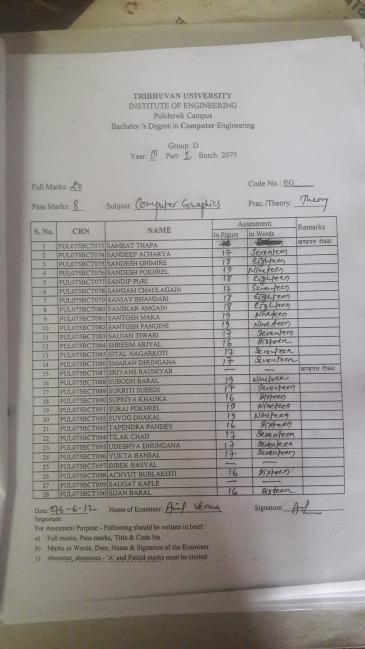 TRIBHUVAN UNIVERSITY
INSTITUTE OF ENGINEERING
Pulchowk Campus
Bachelor's Degree in Computer Engineering
Group: D
Year: II Part: I Batch: 2075
Full Marks: 20 Code No.: EG
Pass Marks: 8 Subject: Computer Graphics Prac./Theory: Theory
S. No. CRN NAME Assesment Remarks
In Figure In Words
1 PUL075BCT073 SAMRAT THAPA
2 PUL075BCT074 SANDEEP ACHARYA 17 Seventeen
3 PUL075BCT075 SANDESH GHIMIRE 18 Eighteen
4 PUL075BCT076 SANDESH POKHREL 19 Nineteen
5 PUL075BCT077 SANDIP PURI 18 Eighteen
6 PUL075BCT078 SANGAM CHAULAGAIN 17 Seventeen
7 PUL075BCT079 SANJAY BHANDARI 18 Eighteen
8 PUL075BCT080 SANSKAR AMGAIN 18 Eighteen
9 PUL075BCT081 SANTOSH MAKA 19 Nineteen
10 PUL075BCT082 SANTOSH PANGENI 19 Nineteen
11 PUL075BCT083 SAUJAN TIWARI 17 Seventeen
12 PUL075BCT084 SHREEM ARJYAL 16 Sixteen
13 PUL075BCT085 SITAL NAGARKOTI 17 Seventeen
14 PUL075BCT086 SMARAN DHUNGANA 17 Seventeen
15 PUL075BCT087 SRIYANS RAUNIYAR — —
16 PUL075BCT088 SUBODH BARAL 19 Nineteen
17 PUL075BCT089 SUKRITI SUBEDI 17 Seventeen
18 PUL075BCT090 SUPRIYA KHADKA 16 Sixteen
19 PUL075BCT091 SURAJ POKHREL 19 Nineteen
20 PUL075BCT092 SUYOG DHAKAL 19 Nineteen
21 PUL075BCT093 TAPENDRA PANDEY 16 Sixteen
22 PUL075BCT094 TILAK CHAD 17 Seventeen
23 PUL075BCT095 UDESHYA DHUNGANA 17 Seventeen
24 PUL075BCT096 YUKTA BANSAL 17 Seventeen
25 PUL075BCT097 BIBEK BASYAL — —
26 PUL075BCT098 ACHYUT BURLAKOTI 16 Sixteen
27 PUL075BCT099 SAUGAT KAFLE — —
28 PUL075BCT100 SIJAN BARAL 16 Sixteen
Date: 076-6-12 Name of Examiner: Anil Verma Signature:
Important:
For Assesment Purpose - Following should be written in brief:
a) Full marks, Pass marks, Title & Code No.
b) Marks in Words, Date, Name & Signature of the Examiner
c) Absence, absentees - 'A' and Failed marks must be circled